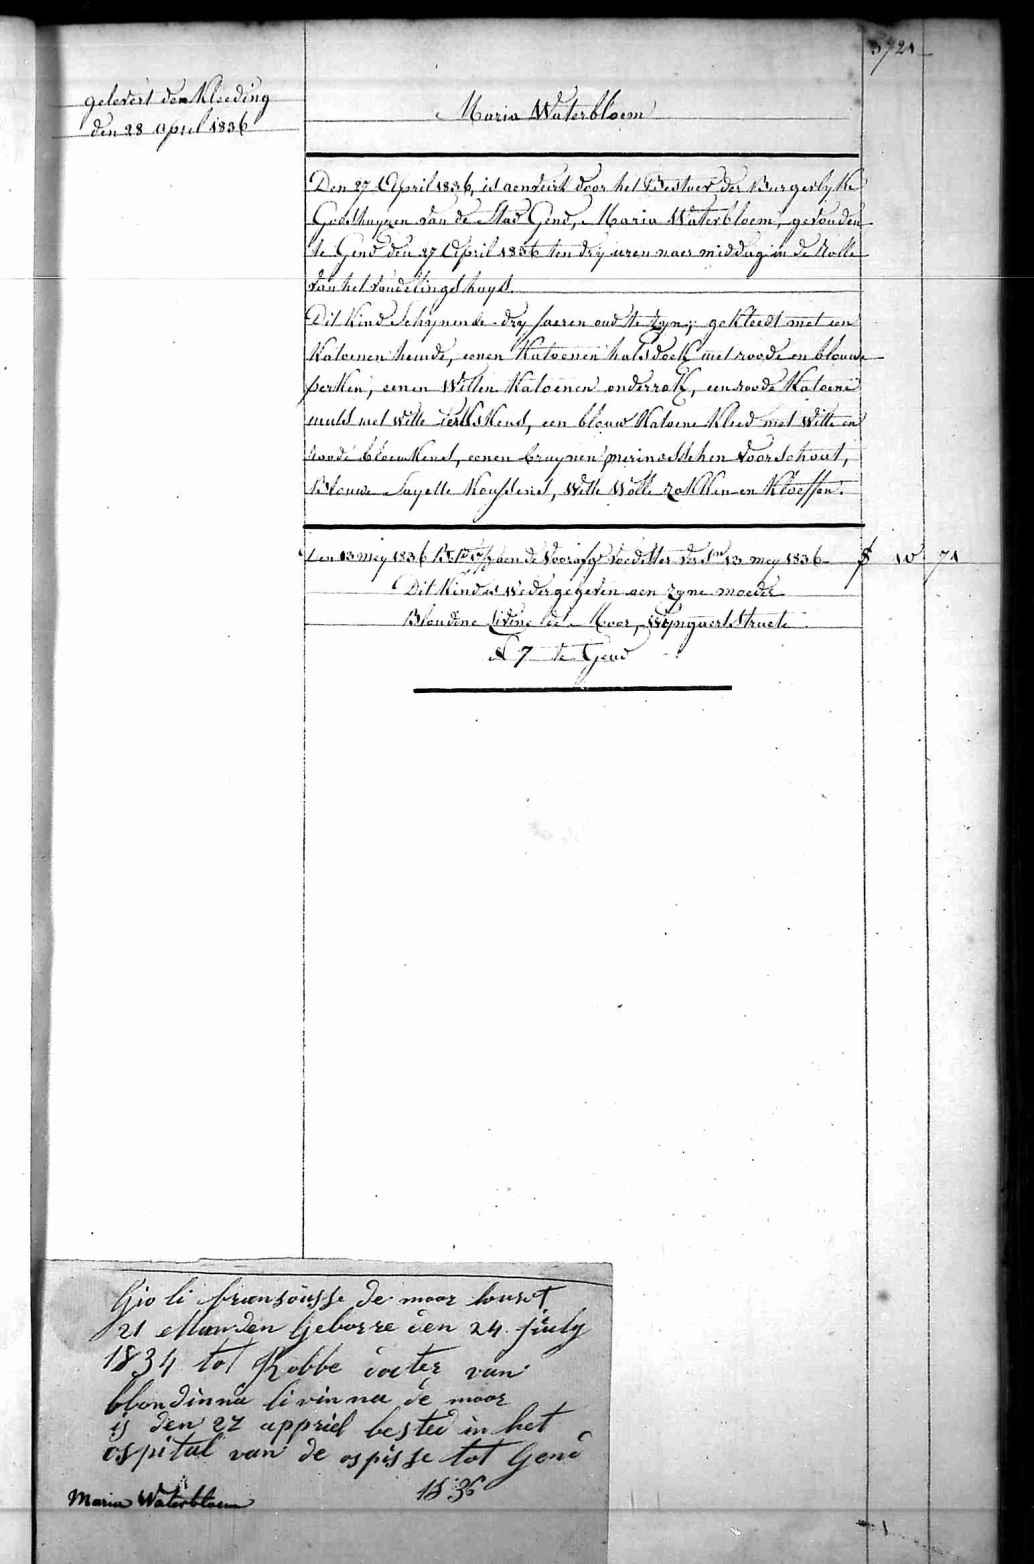 3721
gelevert den Kleeding
den 28 april 1836
Maria Waterbloem
Den 27 April 1836, is aenveirt door het Bestuer der Burgerlyke
Godshuyzen van de Stad Gend, Maria Waterbloem, gevonden
te Gend den 27 April 1836 ten dry uren naer middag in de Rolle
van het vondelingshuys.
Dit Kind Schynende dry jaeren oud te zyn, gekleedt met een
Katoenen hemde, eenen Katoenen halsdoek met roode en blauwe
perken, eenen Witten Katoenen onderrok, een roode Katoene
muts met witte, een blouw Katoene Kleed met Witte en
roode bloemkens, eenen bruynen merinosschen Voorschoot,
Blouwe Sayette Kousens, Witte Wolle zokken en Kloeffen.
Den 13 mey 1836 aen de Voedster 13 mey 1836 10 71
Dit Kind is wedergegeven aen zyne moeder
Blondine Livine de Moor, Wyngaertstraete
N 7 te Gend
fransousse de moor
21 Manden Geborre den 24 july
1834 tot Robbe docter van
blondinna livinna de moor
is den 27 appriel bested in het
ospital van de ospisse tot Gend
1836
Maria Waterbloem